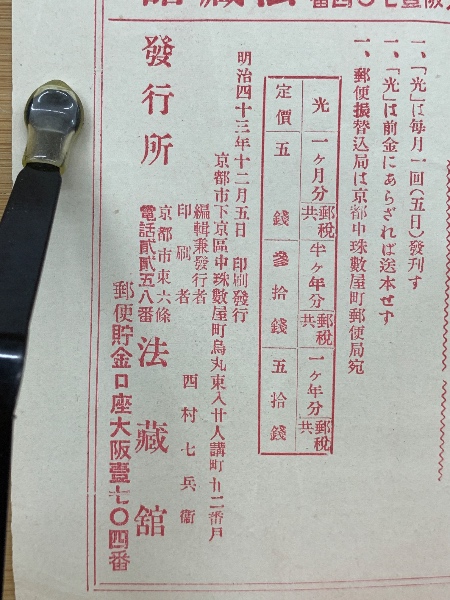 一、「光」は毎月一回(五日)發刊す
一、「光」は前金にあらざれば送本せず
一、郵便振替込局は京都中珠數屋町郵便局宛
光 一ヶ月分 郵税共 半ヶ年分 郵税共 一ヶ年分 郵税共
定價 五錢 參拾錢 五拾錢
明治四十三年十二月五日 印刷發行
京都市下京區中珠數屋町烏丸東入廿人講町廿二番戸
編輯兼發行者
印刷者
西村七兵衞
京都市東六條
發行所 法藏館
電話貳貳五八番
郵便貯金口座大阪壹七〇四番